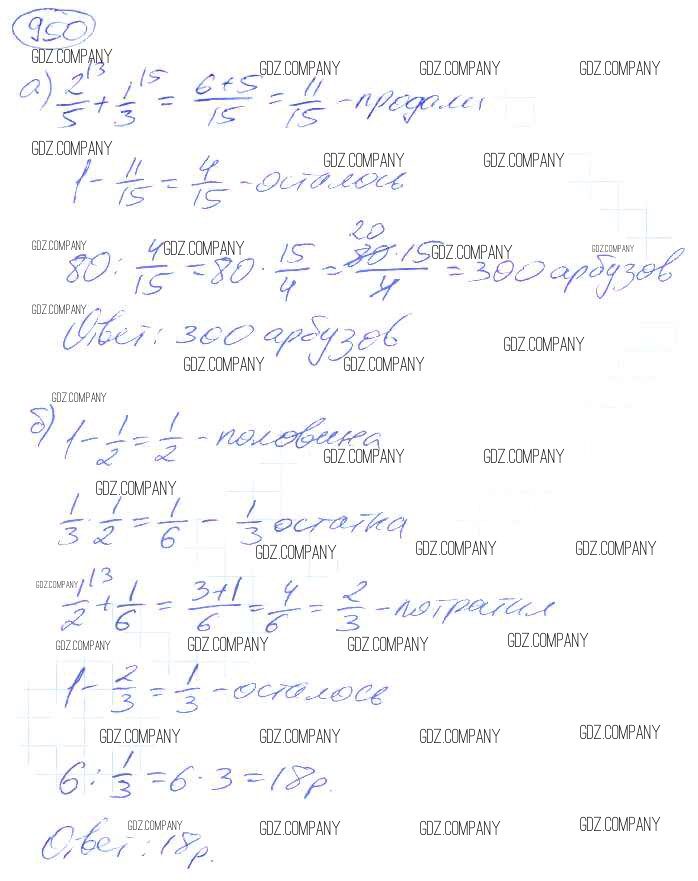 950
GDZ.COMPANY
GDZ.COMPANY GDZ.COMPANY GDZ.COMPANY
а) 2/5 \3 + 1/3 \5 = 6+5/15 = 11/15 - продали
GDZ.COMPANY GDZ.COMPANY GDZ.COMPANY
1 - 11/15 = 4/15 - осталось
GDZ.COMPANY GDZ.COMPANY GDZ.COMPANY GDZ.COMPANY
80 : 4/15 = 80 · 15/4 = 80·15/4 20 = 300 арбузов
GDZ.COMPANY
Ответ: 300 арбузов
GDZ.COMPANY GDZ.COMPANY GDZ.COMPANY
GDZ.COMPANY
б) 1 - 1/2 = 1/2 - половина
GDZ.COMPANY GDZ.COMPANY
GDZ.COMPANY
1/3 · 1/2 = 1/6 - 1/3 остатка
GDZ.COMPANY GDZ.COMPANY GDZ.COMPANY
GDZ.COMPANY
1/2 \3 + 1/6 = 3+1/6 = 4/6 = 2/3 - потратил
GDZ.COMPANY GDZ.COMPANY GDZ.COMPANY GDZ.COMPANY
1 - 2/3 = 1/3 - осталось
GDZ.COMPANY GDZ.COMPANY GDZ.COMPANY GDZ.COMPANY
6 : 1/3 = 6 · 3 = 18 р.
GDZ.COMPANY GDZ.COMPANY GDZ.COMPANY GDZ.COMPANY
Ответ: 18 р.